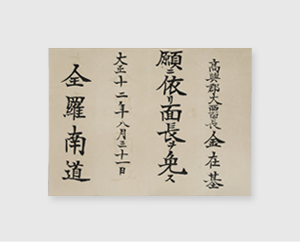 高興郡大西面長 金在基
願ニ依リ面長ヲ免ス
大正十二年八月三十一日
全羅南道